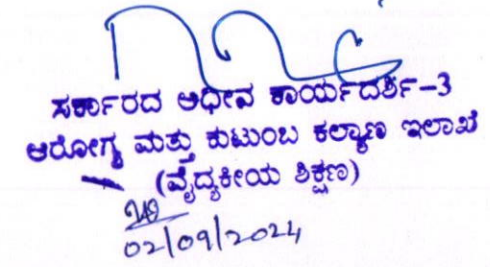 ಸರ್ಕಾರದ ಅಧೀನ ಕಾರ್ಯದರ್ಶಿ-3
ಆರೋಗ್ಯ ಮತ್ತು ಕುಟುಂಬ ಕಲ್ಯಾಣ ಇಲಾಖೆ
(ವೈದ್ಯಕೀಯ ಶಿಕ್ಷಣ)
02/09/2024